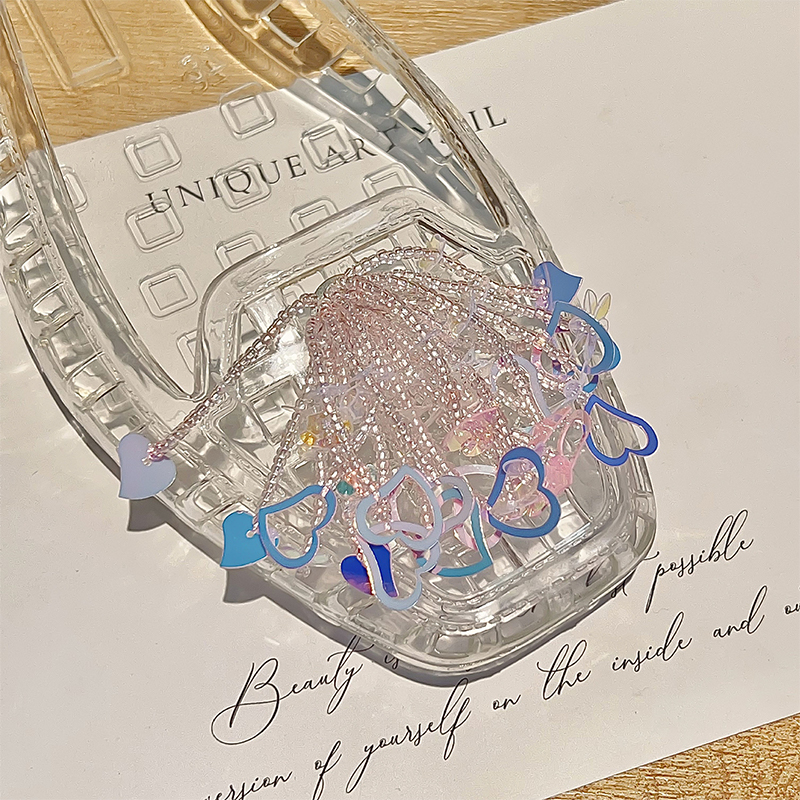 UNIQUE ART NAIL
Beauty is possible
of yourself on the inside and